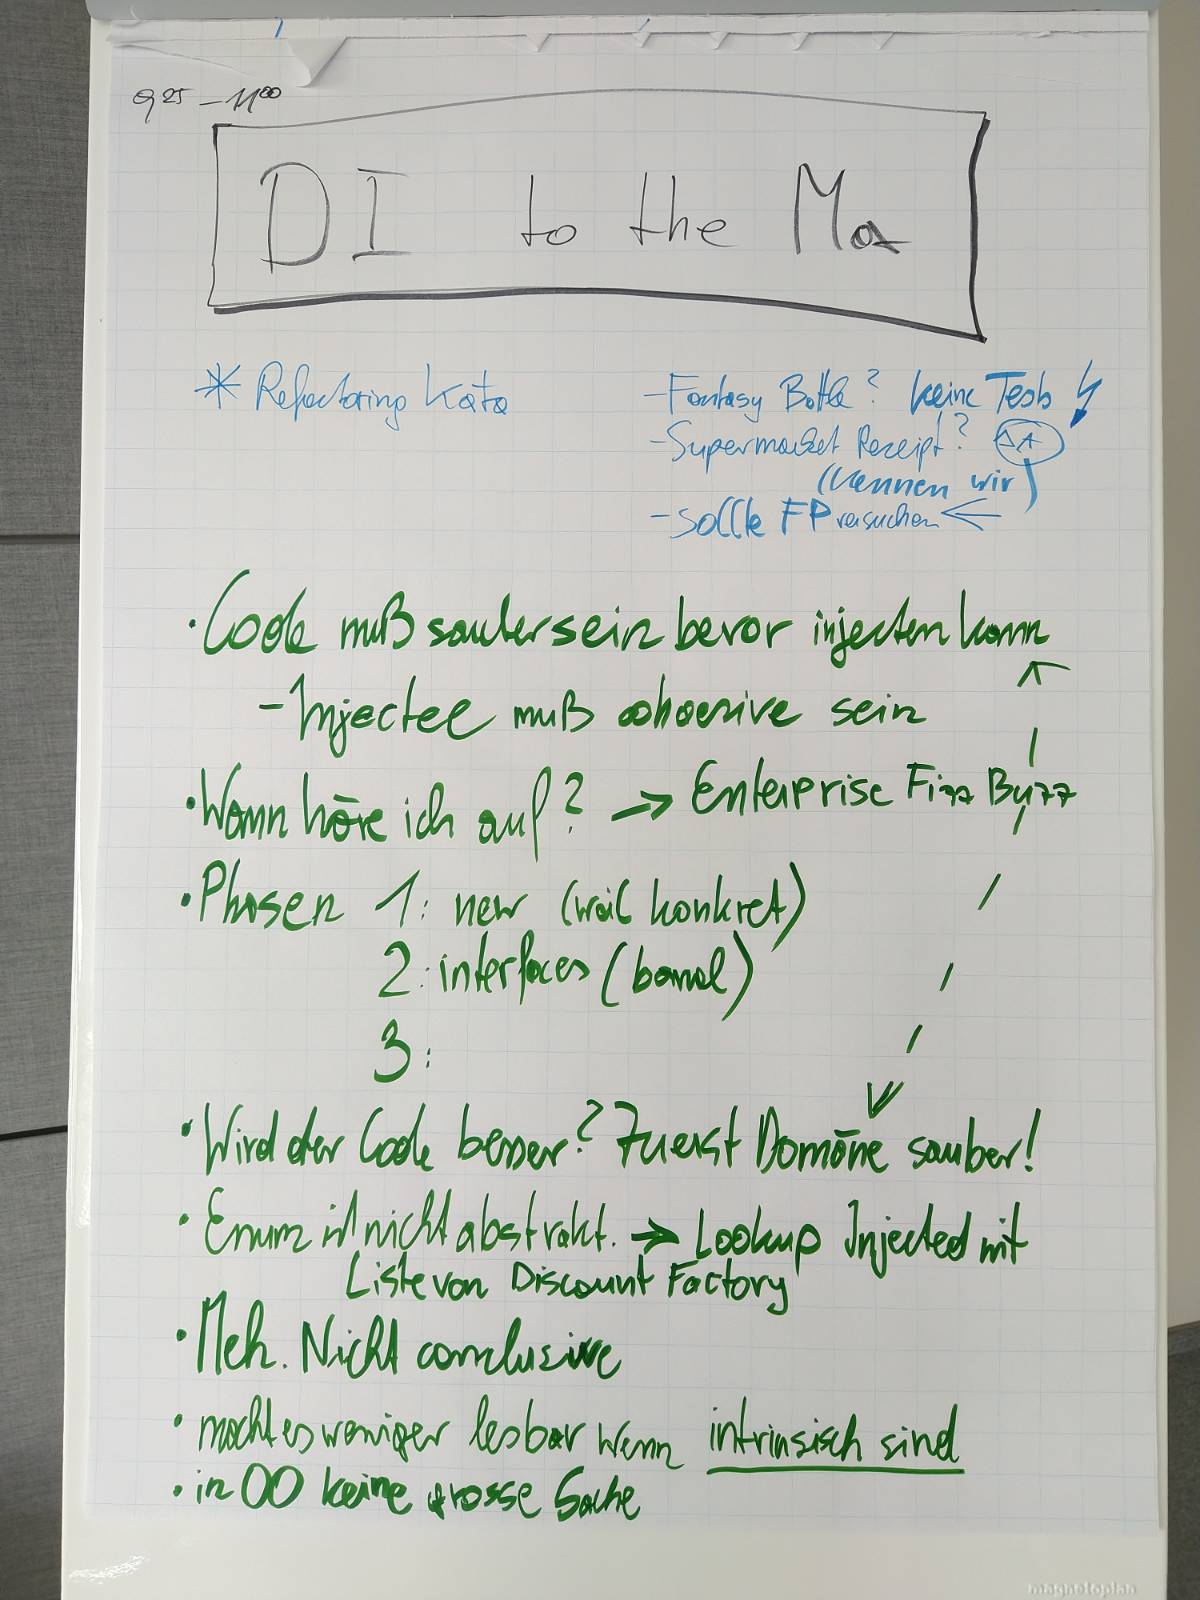 9 25 – 11 00
DI to the Max
* Refactoring Kata
- Fantasy Battle? keine Tests
- Supermarket Receipt?
(kennen wir)
- sollte FP versuchen ←
• Code muß sauber sein bevor injecten kann
- Injectee muß cohaesive sein
• Wann höre ich auf? → Enterprise Fizz Buzz
• Phasen 1: new (weil konkret)
2: interfaces (banal)
3:
• Wird der Code besser? Zuerst Domäne sauber!
• Enum ist nicht abstrakt. → Lookup Injected mit
Liste von Discount Factory
• Meh. Nicht conclusive
• macht es weniger lesbar wenn intrinsisch sind
• in OO keine grosse Sache
magnetoplan